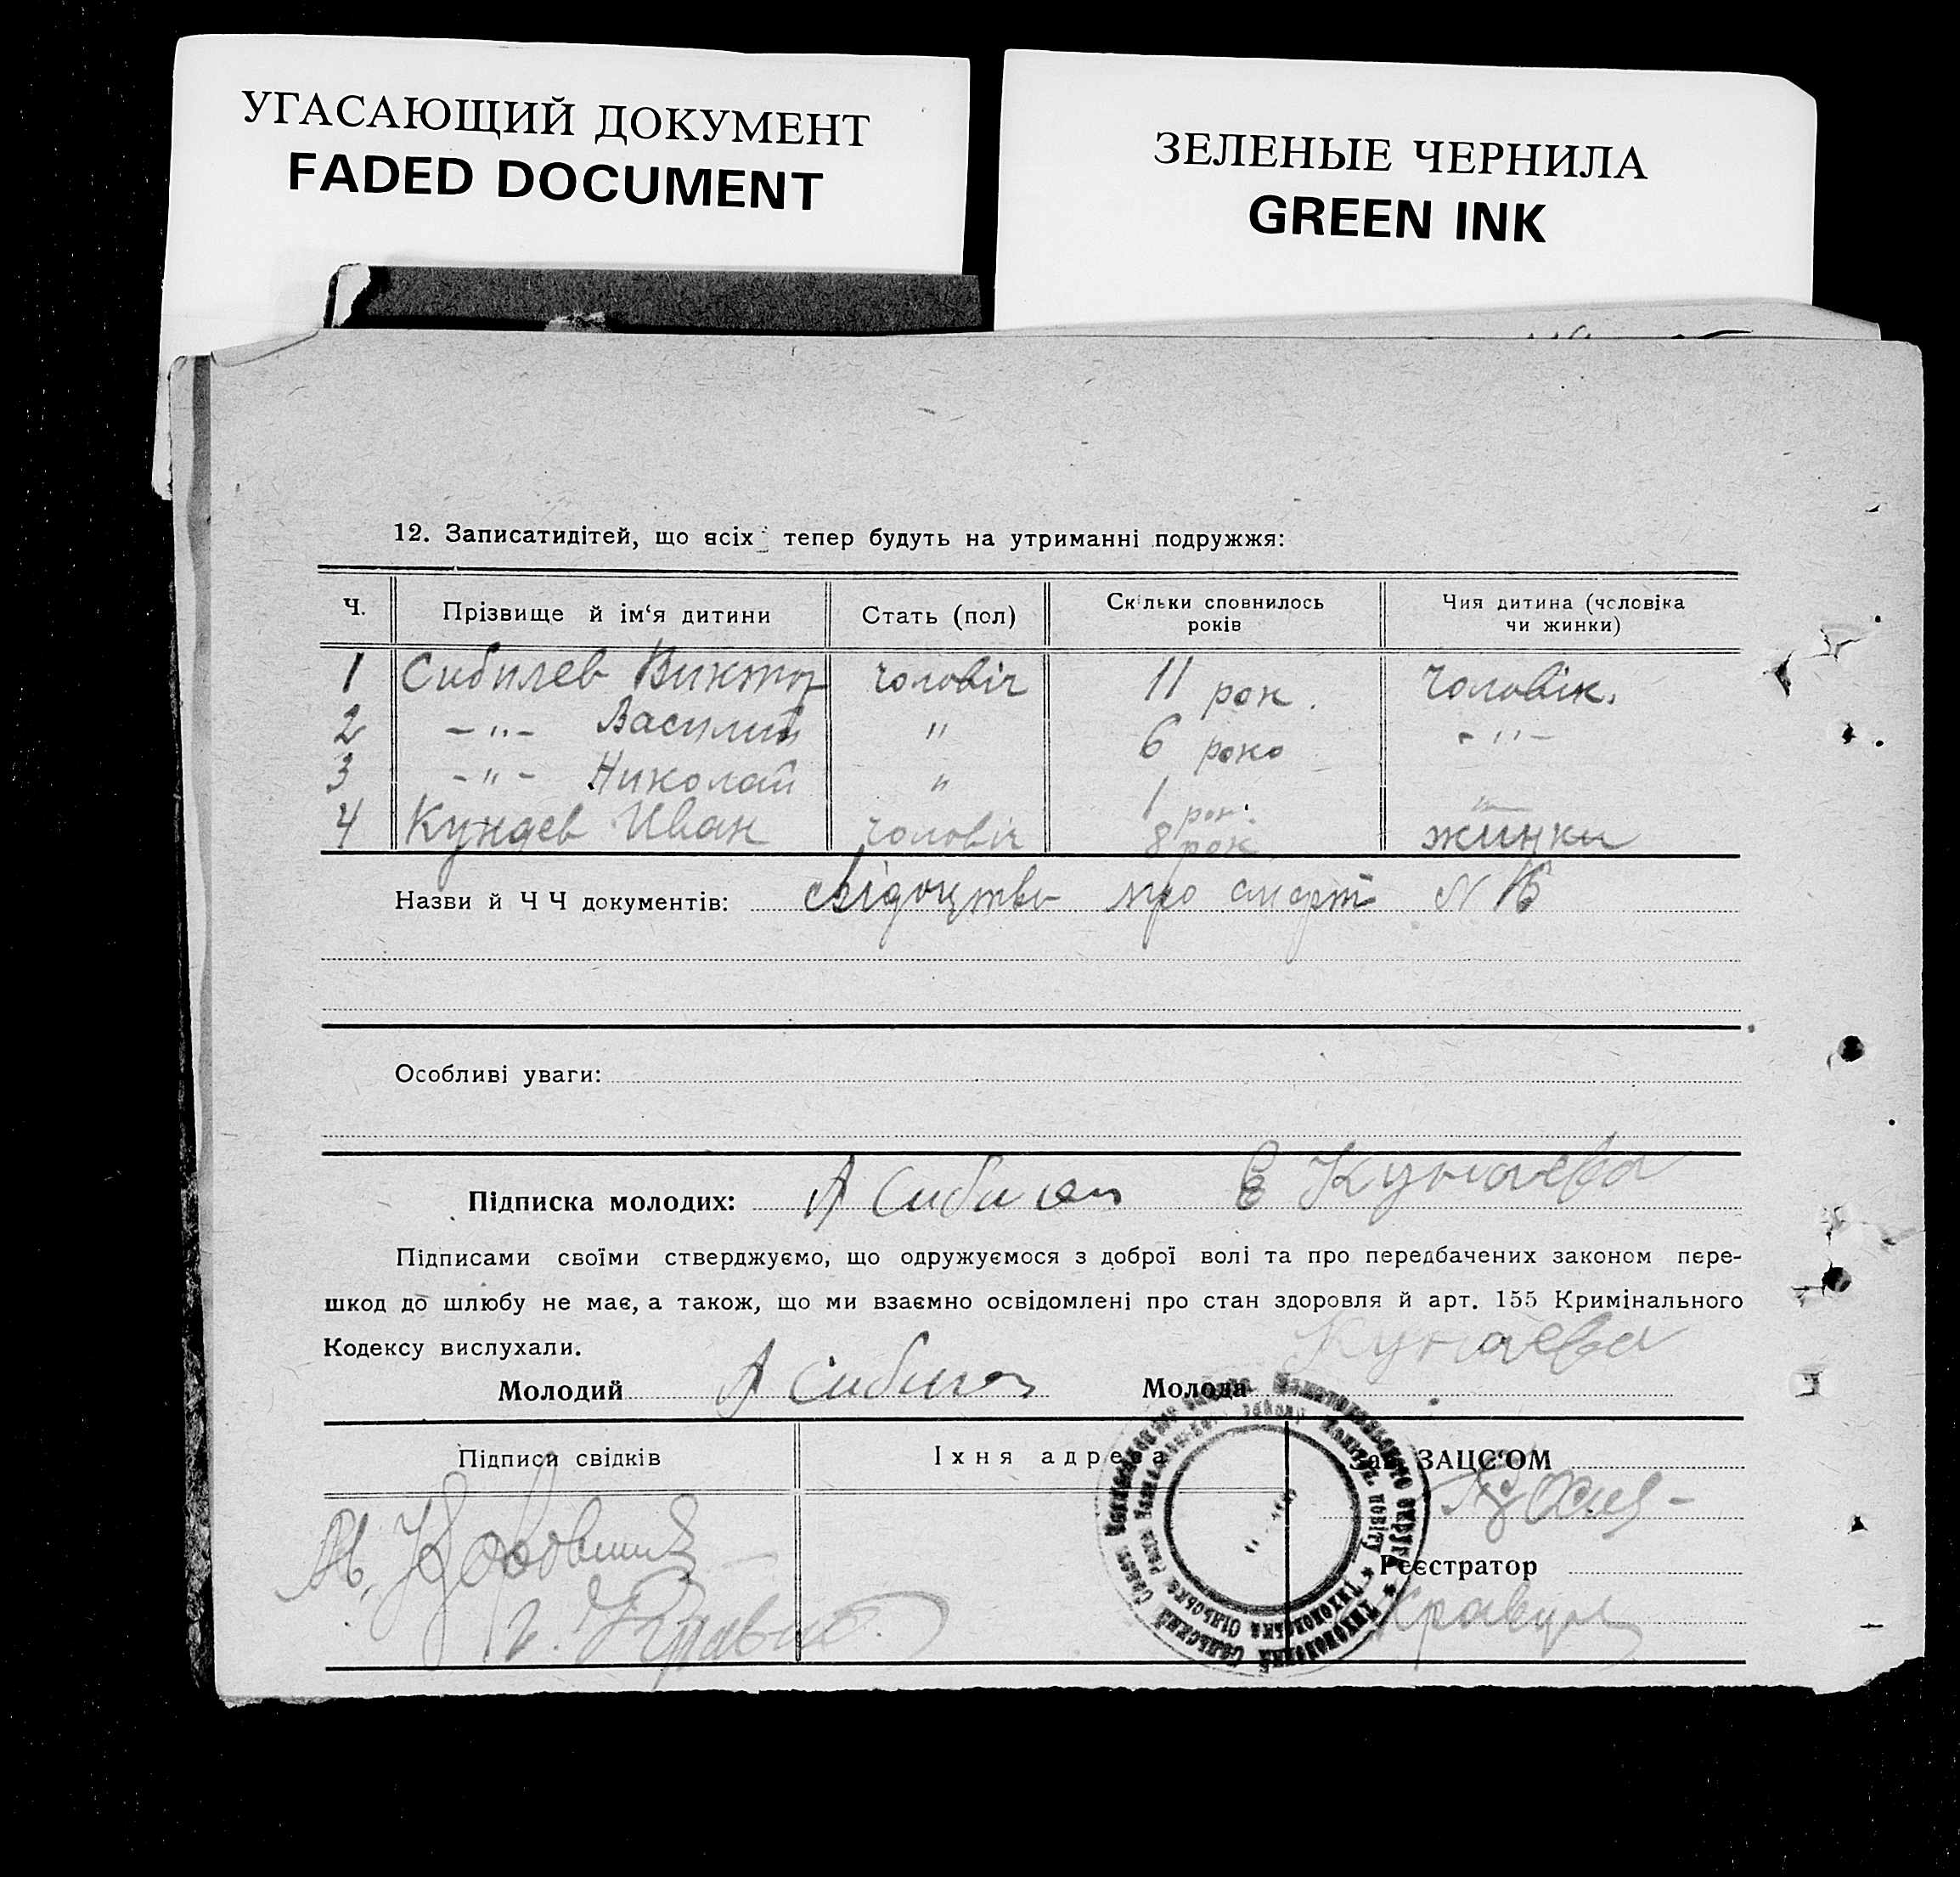 УГАСАЮЩИЙ ДОКУМЕНТ
FADED DOCUMENT
ЗЕЛЕНЫЕ ЧЕРНИЛА
GREEN INK
12. Записатидітей, що всіх тепер будуть на утриманні подружжя:
Ч. Прізвище й ім‘я дитини Стать (пол) Скільки сповнилось років Чия дитина (чоловіка чи жинки)
1 Сибилев Виктор чоловіч 11 рок. чоловік.
2 -"- Василий " 6 роко -"-
3 -"- Николай " 1 рок. "
4 Кундев Иван чоловіч 8 рок жинки
Назви й Ч Ч документів: свідоцтво про смерт N
Особливі уваги:
Підписка молодих: А Сибилев Е Кундева
Підписами своїми стверджуємо, що одружуємося з доброї волі та про передбачених законом пере-
шкод до шлюбу не має, а також, що ми взаємно освідомлені про стан здоровля й арт. 155 Кримінального
Кодексу вислухали.
Молодий А Сибилев Молода Кундева
Підписи свідків Іхня адреса Зав ЗАЦС‘ОМ
Реєстратор
Кравчук